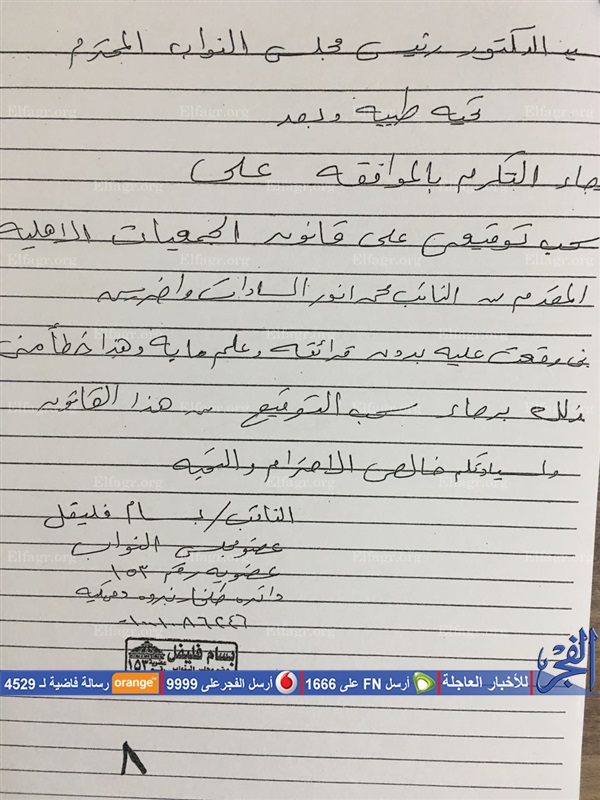 الدكتور رئيس مجلس النواب المحترم
تحيه طيبه وبعد
التكرم بالموافقه على
سحب توقيعى على قانون الجمعيات الاهليه
المقدم من النائب محمد انور السادات واخرين
وقعت عليه بدون قرائته وعلم مابه وهذا خطأ منى
برجاء سحب التوقيع من هذا القانون
خالص الاحترام والتحيه
النائب / بسام فليفل
عضو مجلس النواب
عضويه رقم ١٥٣
دائره طلخا نبروه
بسام فليفل
١٥٣
الفجر
للأخبار العاجلة
أرسل FN على 1666
أرسل الفجر على 9999
orange
رسالة فاضية لـ 4529
٨
Elfagr.org